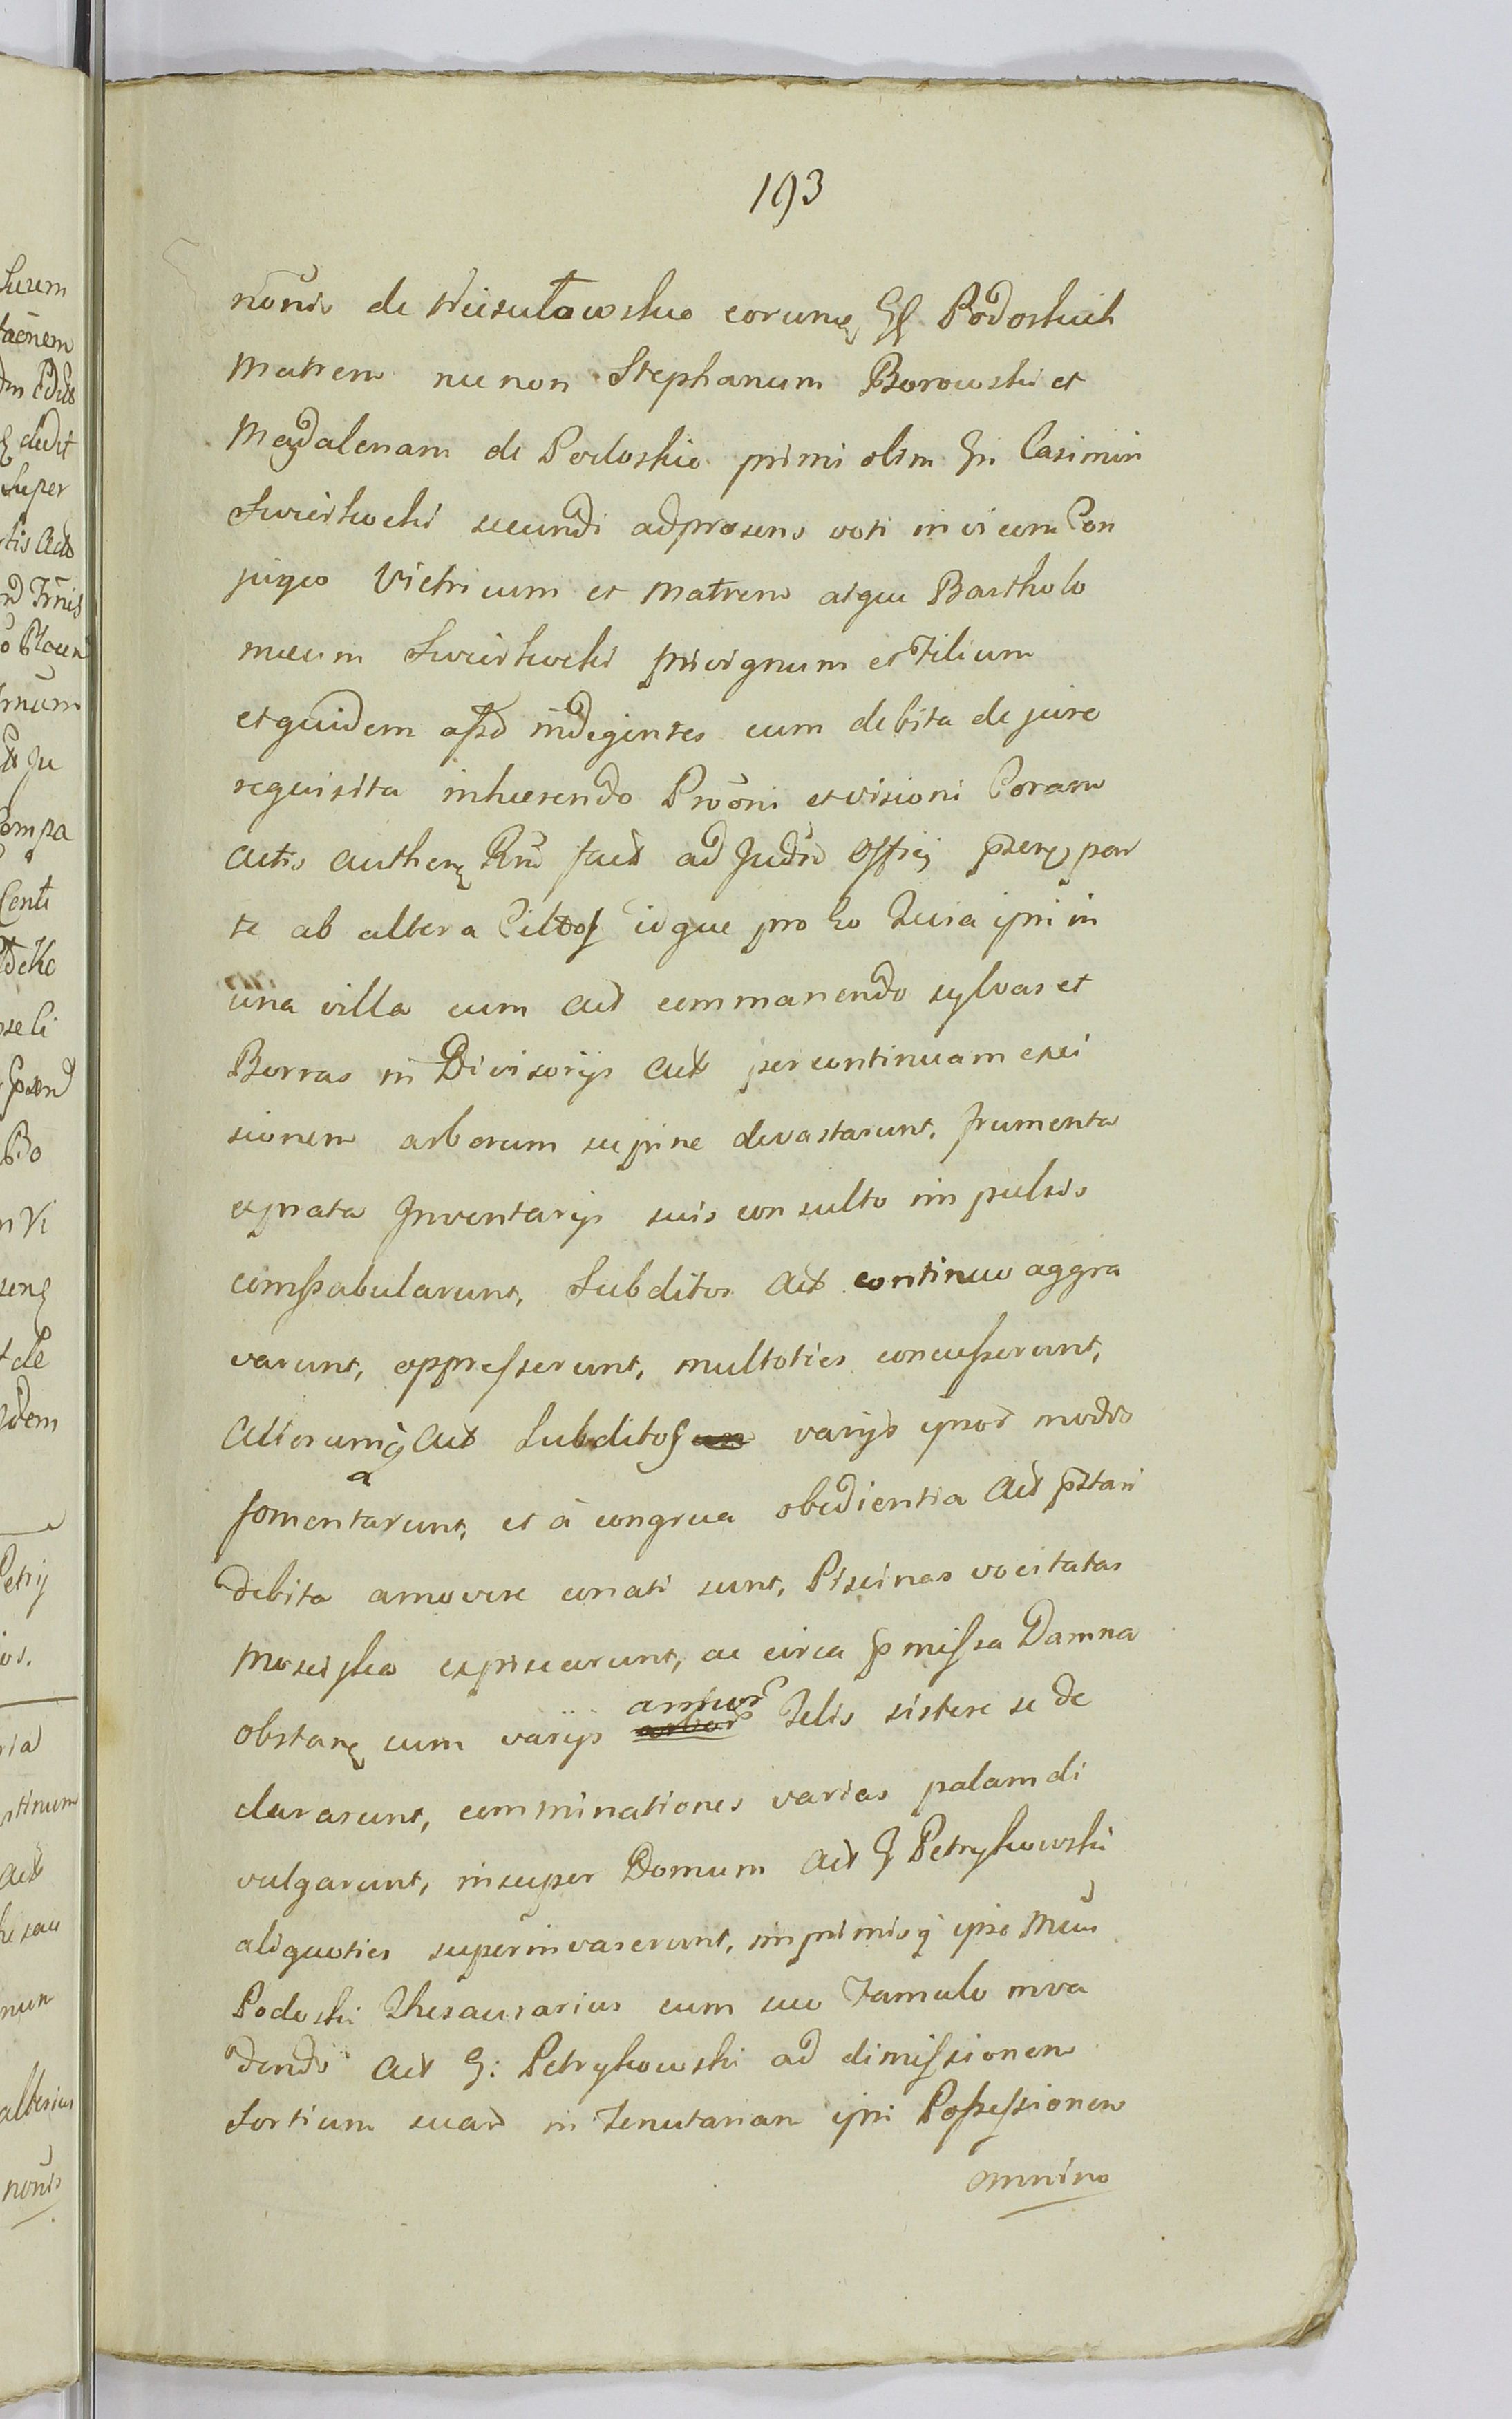 193
nõnis de Wierułowskie eorunq GG Podoskich
Matrem nec non Stephanum Borowski et
Magdalenam de Podoskie primi olim Gni Casimiri
Swierkocki secundi ad prosens voti invicem Con
juges Vitricum et Matrem atque Bartholo
meum Swierkocki privignum et Filium
et quidem apd indigentes cum debita de jure
requisita inhaerendo Prõõni et visioni Coram
Actis Authenq fact ad Judm Officij pser par
te ab altera Citdos idque pro eo Quia ipsi in
una villa cum Act commanendo sylvas et
Borras in Divisorijs Act per continuam exci
sionem arborum supine devastarunt, frumenta
et prata Inventarijs suis consulto impulsis
comstabularunt, Subditos Act continuo aggra
varunt, oppresserunt, multoties concusserunt,
Aliorumq Act Subditos varijs ipsor modis
fomentarunt, et à congrua obedientia Act pstari
debita amovere conati sunt, Piscinas vocitatas
Mosciska expiscarunt, ac circa pmissa Damna
obstanq cum varijs armor Telis sistere se de
clararunt, comminationes varias palam di
vulgarunt, insuper Domum Act G Petrykowski
aliquoties superinvaserunt, imprimisq ipse Mcus
Podoski Thesaurarius cum suo Famulo inva
dendo Act G: Petrykowski ad dimissionem
Sortium suar in Tenutariam ipsi Possessionem
omnino
Surem
taõnem
dedit
Super
tis Act
Ju
ompa
seli
Bo
n Vi
t de
dem
Petrij
os.
ria
Act
nun
nõnis